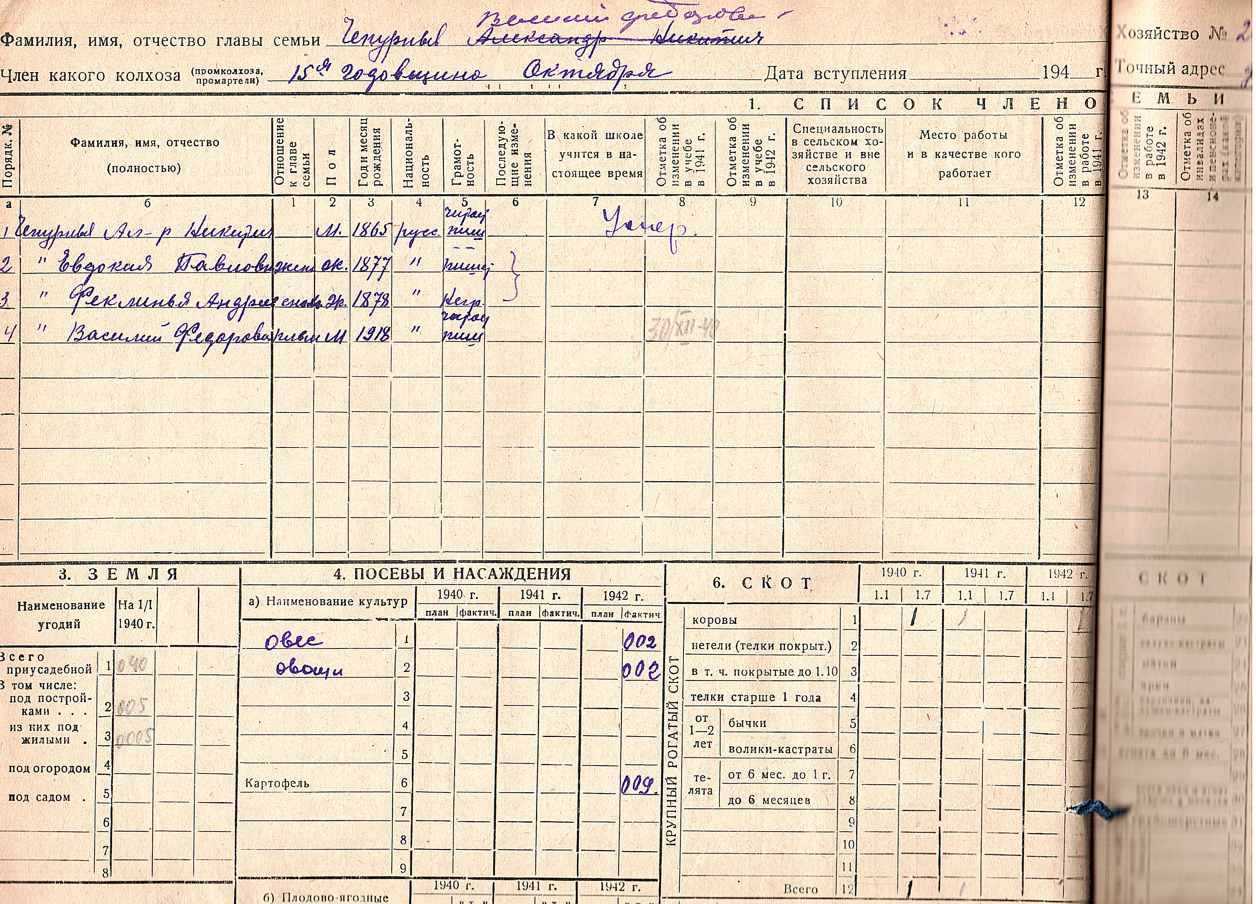 Василий Федорови
Фамилия, имя, отчество главы семьи Чепурных Александр Никитич
Хозяйство № 2
Член какого колхоза (промколхоза, промартели) 15ая годовщина Октября Дата вступления 194 г.
Точный адрес
1. СПИСОК ЧЛЕНО
ЕМЬИ
Порядк. №
Фамилия, имя, отчество (полностью)
Отношение к главе семьи
Пол
Год и месяц рождения
Националь-ность
Грамот-ность
Последую-щие изме-нения
В какой школе учится в на-стоящее время
Отметка об изменении в учебе в 1941 г.
Отметка об изменении в учебе в 1942 г.
Специальность в сельском хо-зяйстве и вне сельского хозяйства
Место работы и в качестве кого работает
Отметка об изменении в работе в 1941 г.
Отметка об изменении в работе в 1942 г.
Отметка об инвалидах
а б 1 2 3 4 5 6 7 8 9 10 11 12 13 14
1 Чепурных Ал-р Никитич м. 1865 русс. читает пиш Умер.
2 " Евдокия Павловн жена ж. 1877 " пишет
3 " Феклинья Андрее ж. 1878 " Негр.
4 " Василий Федорови м 1918 " читает пиш 30/XII-40
3. ЗЕМЛЯ
Наименование угодий
На 1/I 1940 г.
Всего приусадебной 1 040
В том числе:
под построй-ками . . . 2 005
из них под жилыми . 3 0005
под огородом 4
под садом . 5
6
7
8
4. ПОСЕВЫ И НАСАЖДЕНИЯ
а) Наименование культур
1940 г. 1941 г. 1942 г.
план фактич. план фактич. план фактич
овес 1 002
овощи 2 002
3
4
5
Картофель 6 009.
7
8
9
б) Плодово-ягодные
1940 г. 1941 г. 1942 г.
6. СКОТ
1940 г. 1941 г. 1942 г.
1.1 1.7 1.1 1.7 1.1 1.7
КРУПНЫЙ РОГАТЫЙ СКОТ
коровы 1 1 1 1
нетели (телки покрыт.) 2
в т. ч. покрытые до 1.10 3
телки старше 1 года 4
от 1—2 лет
бычки 5
волики-кастраты 6
те-лята
от 6 мес. до 1 г. 7
до 6 месяцев 8
9
10
11
Всего 12 1 1
СКОТ